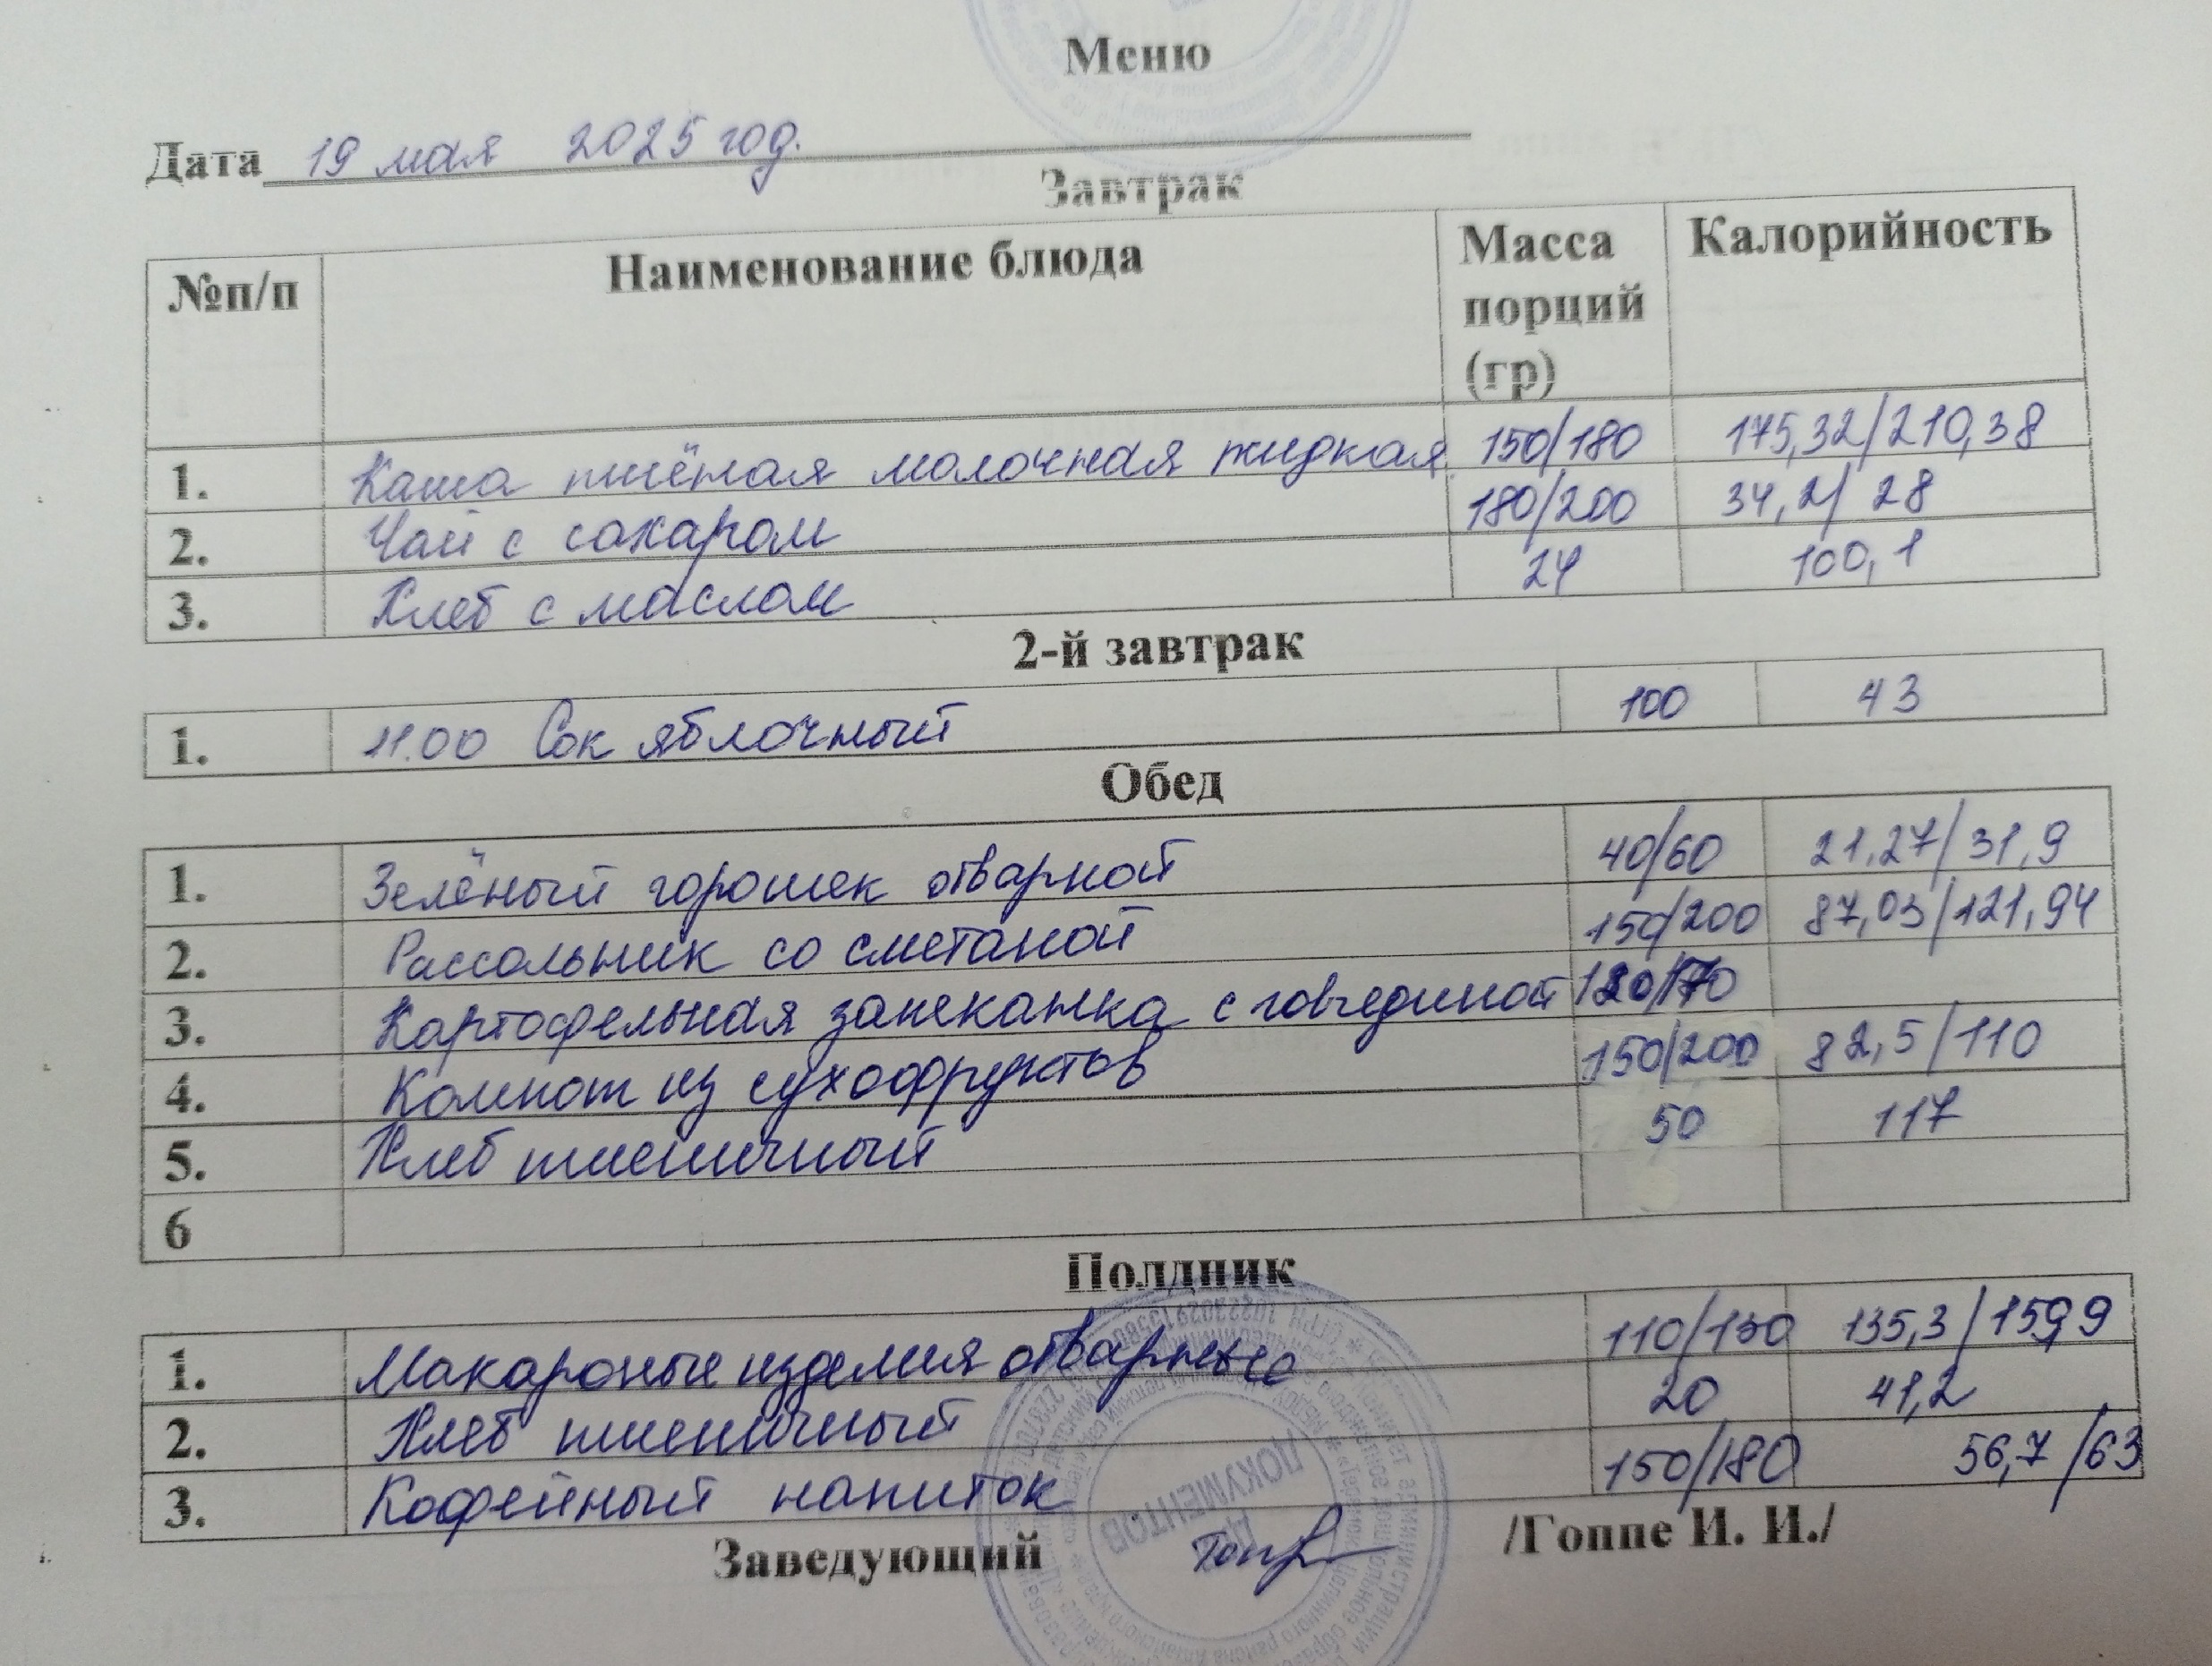 Меню
Дата 19 мая 2025 год.
Завтрак
№п/п Наименование блюда Масса порций (гр) Калорийность
1. Каша пшёная молочная жидкая. 150/180 175,32/210,38
2. Чай с сахаром 180/200 34,2/28
3. Хлеб с маслом 24 100,1
2-й завтрак
1. 11.00 Сок яблочный 100 43
Обед
1. Зелёный горошек отварной 40/60 21,27/31,9
2. Рассольник со сметаной 150/200 87,03/121,94
3. Картофельная запеканка с говядиной
4. Компот из сухофруктов 150/200 82,5/110
5. Хлеб пшеничный 50 117
6
Полдник
1. Макароные изделия отварные 110/130 135,3/159,9
2. Хлеб пшеничный 20 41,2
3. Кофейный напиток 150/180 56,7/63
Заведующий /Гоппе И. И./
ДЛЯ ДОКУМЕНТОВ